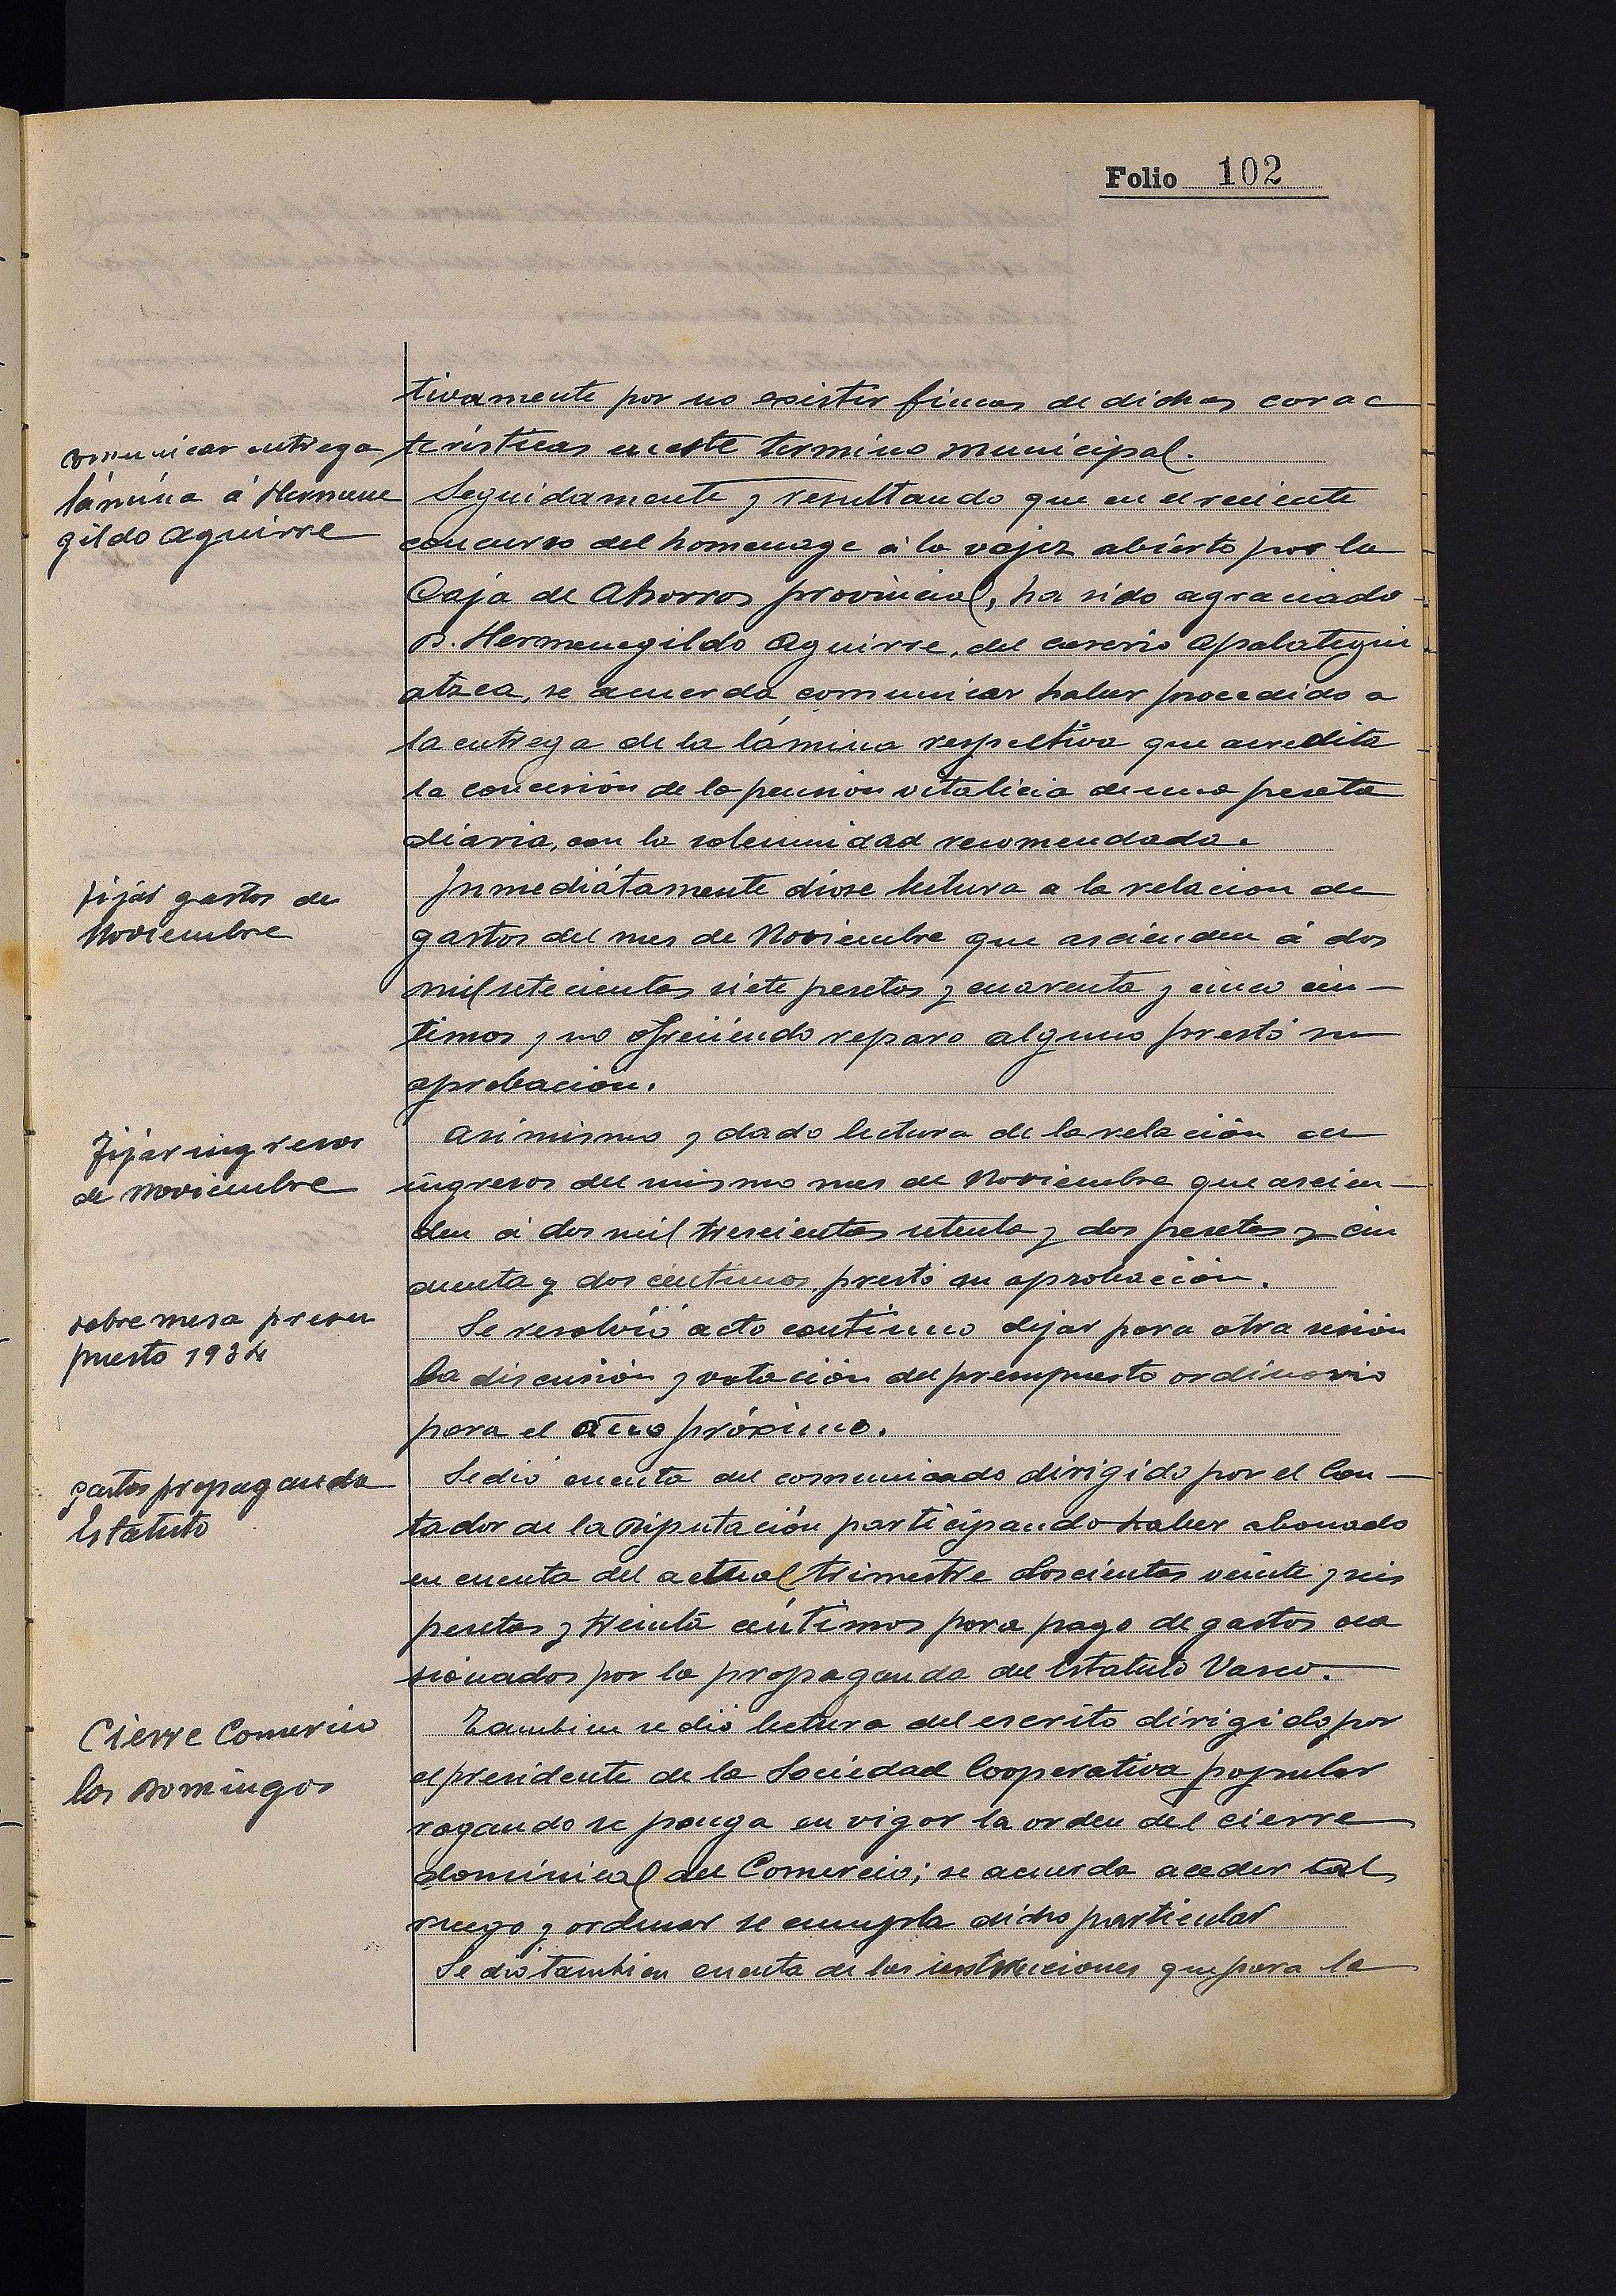 Folio 102
tivamente por no existir fincas de dichas carac
terísticas en este termino municipal.
comunicar entrega
lámina á Hermene
gildo Aguirre
Seguidamente y resultando que en el reciente
concurso del homenage á la vejez abierto por la
Caja de Ahorros provincial, ha sido agraciado
D. Hermenegildo Aguirre, del caserio Apalategui
atzea, se acuerda comunicar haber procedido a
la entrega de la lámina respectiva que acredita
la concesión de la pensión vitalicia de una peseta
diaria, con la solemnidad recomendada.
fijar gastos de
Noviembre
Inmediátamente dióse lectura a la relacion de
gastos del mes de Noviembre que ascienden á dos
mil setecientas siete pesetas y cuarenta y cinco cén-
timos y no ofreciendo reparo alguno prestó su
aprobación.
Fijar ingresos
de noviembre
Asimismo y dado lectura de la relación de
ingresos del mismo mes de Noviembre que ascien-
den á dos mil trescientas setenta y dos pesetas y cin
cuenta y dos céntimos prestó su aprobación.
sobre mesa presu
puesto 1934
Se resolvió acto contínuo dejar para otra sesión
la discusión y votación del presupuesto ordinario
para el año próximo.
gastos propaganda
Estatuto
Se dió cuenta del comunicado dirigido por el Con-
tador de la Diputación participando haber abonado
en cuenta del actual trimestre doscientas veinte y seis
pesetas y treinta céntimos para pago de gastos oca
sionados por la propaganda del Estatuto Vasco.
Cierre Comercio
los Domingos
Tambien se dió lectura del escrito dirigido por
el presidente de la Sociedad Cooperativa popular
rogando se ponga en vigor la orden del cierre
dominical del Comercio; se acuerda acceder tal
ruego y ordenar se cumpla dicho particular
Se dió tambien cuenta de las instrucciones que para la